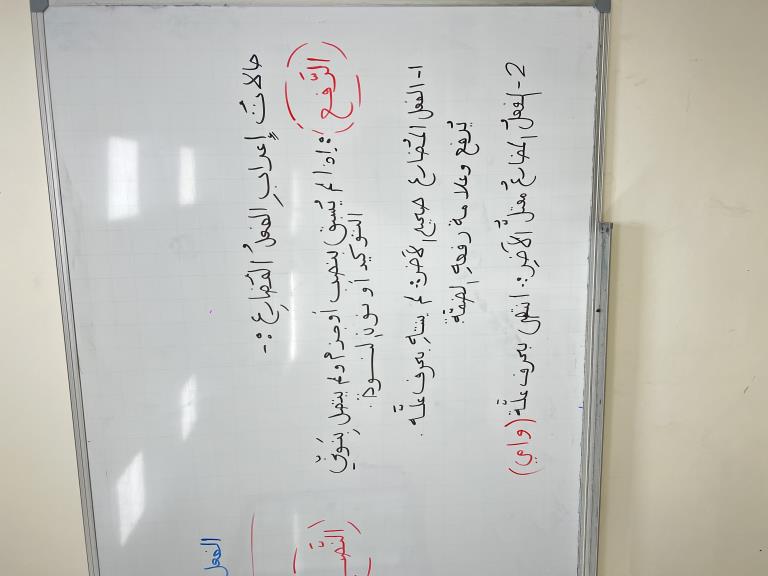 حالاتُ إعرابِ الفعلُ المُضارِع :-
(الرَّفع) : إذا لم يُسبق بنصب أو جزم ولم يتصل بنونيّ
التوكيد أو نون النسوة.
1- الفعل المُضارع صحيح الآخر: لم ينتهِ بحرف علّه.
يُرفع وعلامة رفعهِ الضمّة
2- الفعل المضارع مُعتلُّ الآخر: انتهى بحرف علّة (واي)
(النَّصب
الفعل